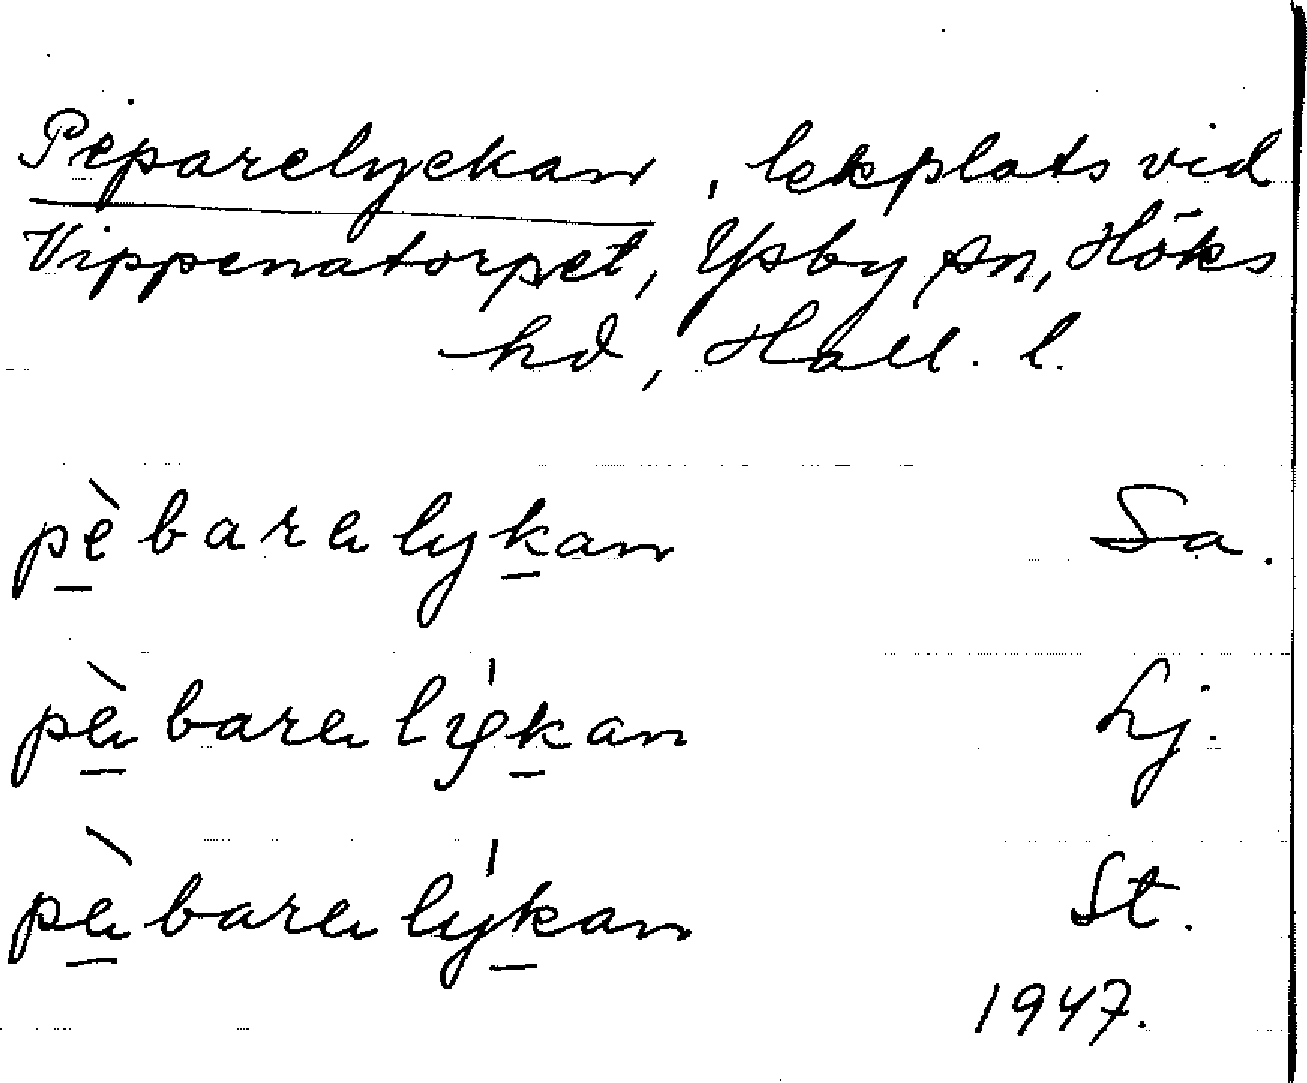 Peparelyckan, lekplats vid
Vippenatorpet, Ysby sn, Höks
hd, Hall. l.
pèbaralykan Sa.
pàbaralykan Lj.
pàbaralykan St.
1947.